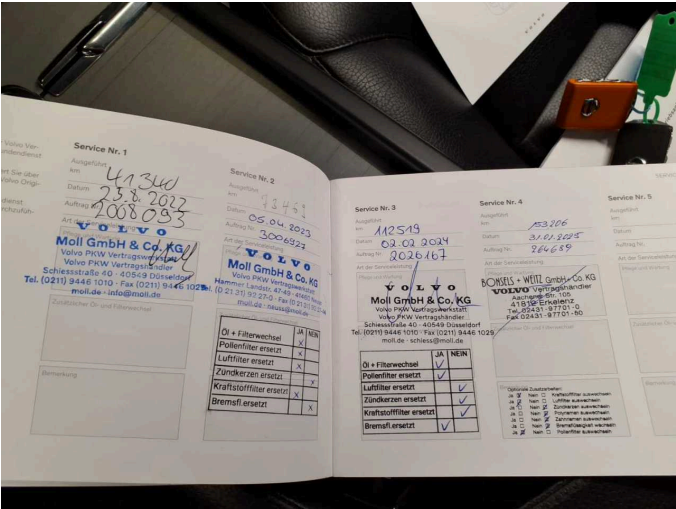 VOLVO
Volvo Ver-
undendienst
ert Sie über
Volvo Origi-
dienst
Service Nr. 1
Ausgeführt
km 41340
Datum 23.8.2022
Auftrag Nr. 2008093
Art der Serviceleistung
VOLVO
Moll GmbH & Co. KG
Volvo PKW Vertragswerkstatt
Volvo PKW Vertragshändler
Schiessstraße 40 · 40549 Düsseldorf
Tel. (0211) 9446 1010 · Fax (0211) 9446 1029
moll.de · info@moll.de
Zusätzlicher Öl- und Filterwechsel
Bemerkung
Service Nr. 2
Ausgeführt
km
Datum 05.04.2023
Auftrag Nr. 3006927
Art der Serviceleistung
VOLVO
Moll GmbH & Co. KG
Volvo PKW Vertragswerkstatt
Volvo PKW Vertragshändler
JA NEIN
Öl + Filterwechsel X
Pollenfilter ersetzt X
Luftfilter ersetzt X
Zündkerzen ersetzt X
Kraftstofffilter ersetzt X
Bremsfl.ersetzt X
Service Nr. 3
Ausgeführt
km 112519
Datum 02.02.2024
Auftrag Nr. 2026167
Art der Serviceleistung
Pflege und Wartung
VOLVO
Moll GmbH & Co. KG
Volvo PKW Vertragswerkstatt
Volvo PKW Vertragshändler
Schiessstraße 40 · 40549 Düsseldorf
Tel. (0211) 9446 1010 · Fax (0211) 9446 1029
moll.de · schiess@moll.de
JA NEIN
Öl + Filterwechsel ✓
Pollenfilter ersetzt ✓
Luftfilter ersetzt ✓
Zündkerzen ersetzt ✓
Kraftstofffilter ersetzt ✓
Bremsfl.ersetzt ✓
Service Nr. 4
Ausgeführt
km 153206
Datum 31.01.2025
Auftrag Nr. 264689
Art der Serviceleistung
Pflege und Wartung
BONSELS + WEITZ GmbH & Co. KG
VOLVO Vertragshändler
Aachener Str. 105
41812 Erkelenz
Tel. 02431-97701-0
Fax 02431-97701-60
Zusätzlicher Öl- und Filterwechsel
Optionale Zusatzarbeiten:
Ja Nein Kraftstofffilter auswechseln
Ja Nein Luftfilter auswechseln
Ja Nein Zündkerzen auswechseln
Ja Nein Polyriemen auswechseln
Ja Nein Zahnriemen auswechseln
Ja Nein Bremsflüssigkeit wechseln
Ja Nein Pollenfilter auswechseln
Service Nr. 5
Ausgeführt
km
Datum
Auftrag Nr.
Art der Serviceleistung
Pflege und Wartung
Zusätzlicher Öl- und
Bemerkung